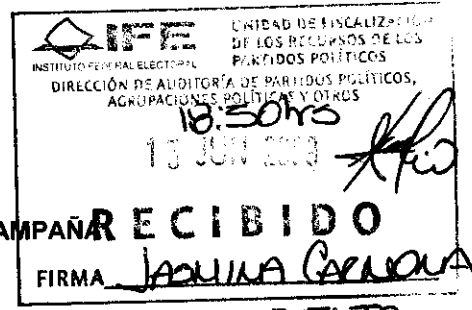 IFE
INSTITUTO FEDERAL ELECTORAL
UNIDAD DE FISCALIZACIÓN
DE LOS RECURSOS DE LOS
PARTIDOS POLÍTICOS
DIRECCIÓN DE AUDITORÍA DE PARTIDOS POLÍTICOS,
AGRUPACIONES POLÍTICAS Y OTROS
18:50hrs
JUN
AMPAÑA RECIBIDO
FIRMA JASMINA CARMONA